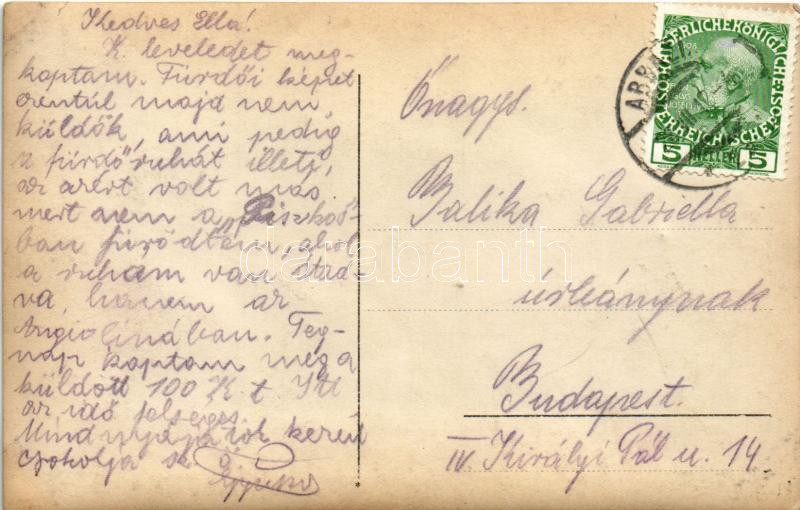 Kedves Ella!
K. leveledet meg-
kaptam. Fürdői képet
ezentúl majd nem
küldök, ami pedig
a fürdő ruhát illeti,
az azért volt más
mert nem a „Piszkos"
ban fürödtem, ahol
a ruhám van ităd
va, hanem az
Angiolinában. Teg-
nap kaptam meg a
küldött 100 K. t Itt
az idő felséges.
Mindnyájatok kezeit
csokolja
Őnagys.
Balika Gabriella
úrleánynak
Budapest.
IV. Királyi Pál u. 14.
ABBAZI
KAISERLICHE KÖNIGLICHE
ÖSTERREICHISCHE
5 HELLER 5
darabanth